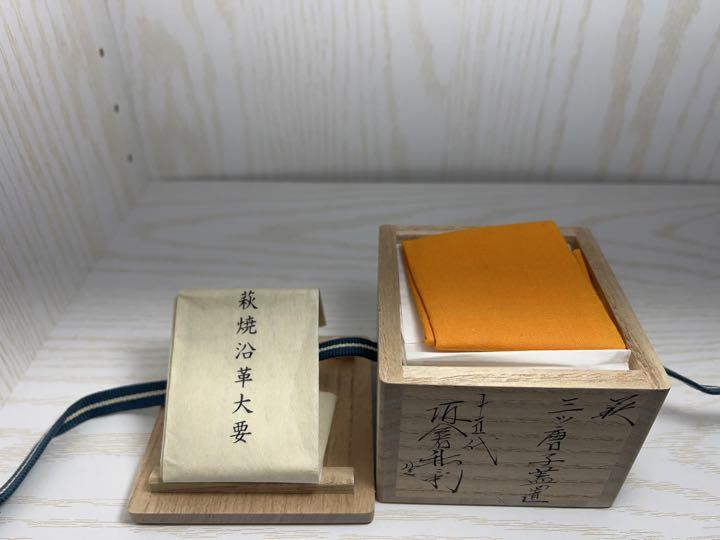 萩焼沿革大要
萩
三ツ唐子蓋置
十五代
坂倉新兵衛